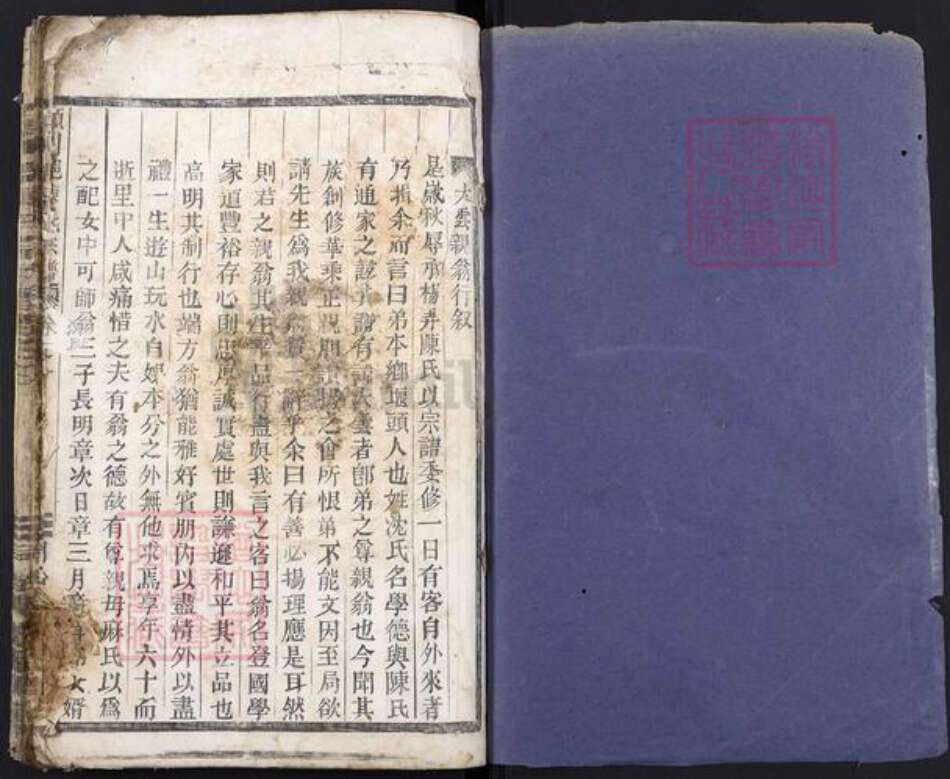 大雲親翁行叙
是歲秋辱承楊弄陳氏以宗譜委修一日有客自外來者
乃揖余而言曰弟本鄉堰頭人也姓沈氏名學德與陳氏
有通家之誼其譜有諱大雲者卽弟之尊親翁也今聞其
族創修華乘正親朋讚揚之會所恨弟不能文因至局欲
請先生爲我親翁贊一辭乎余曰有善必揚理應是耳然
則君之親翁其生平品行盍與我言之客曰翁名登國學
家道豐裕存心則忠厚誠實處世則謙遜和平其立品也
高明其制行也端方翁猶能雅好賓朋內以盡情外以盡
禮一生遊山玩水自娛本分之外無他求焉享年六十而
逝里中人咸痛惜之夫有翁之德故有尊親母麻氏以爲
之配女中可師翁三子長明章次日章三月章 女婿